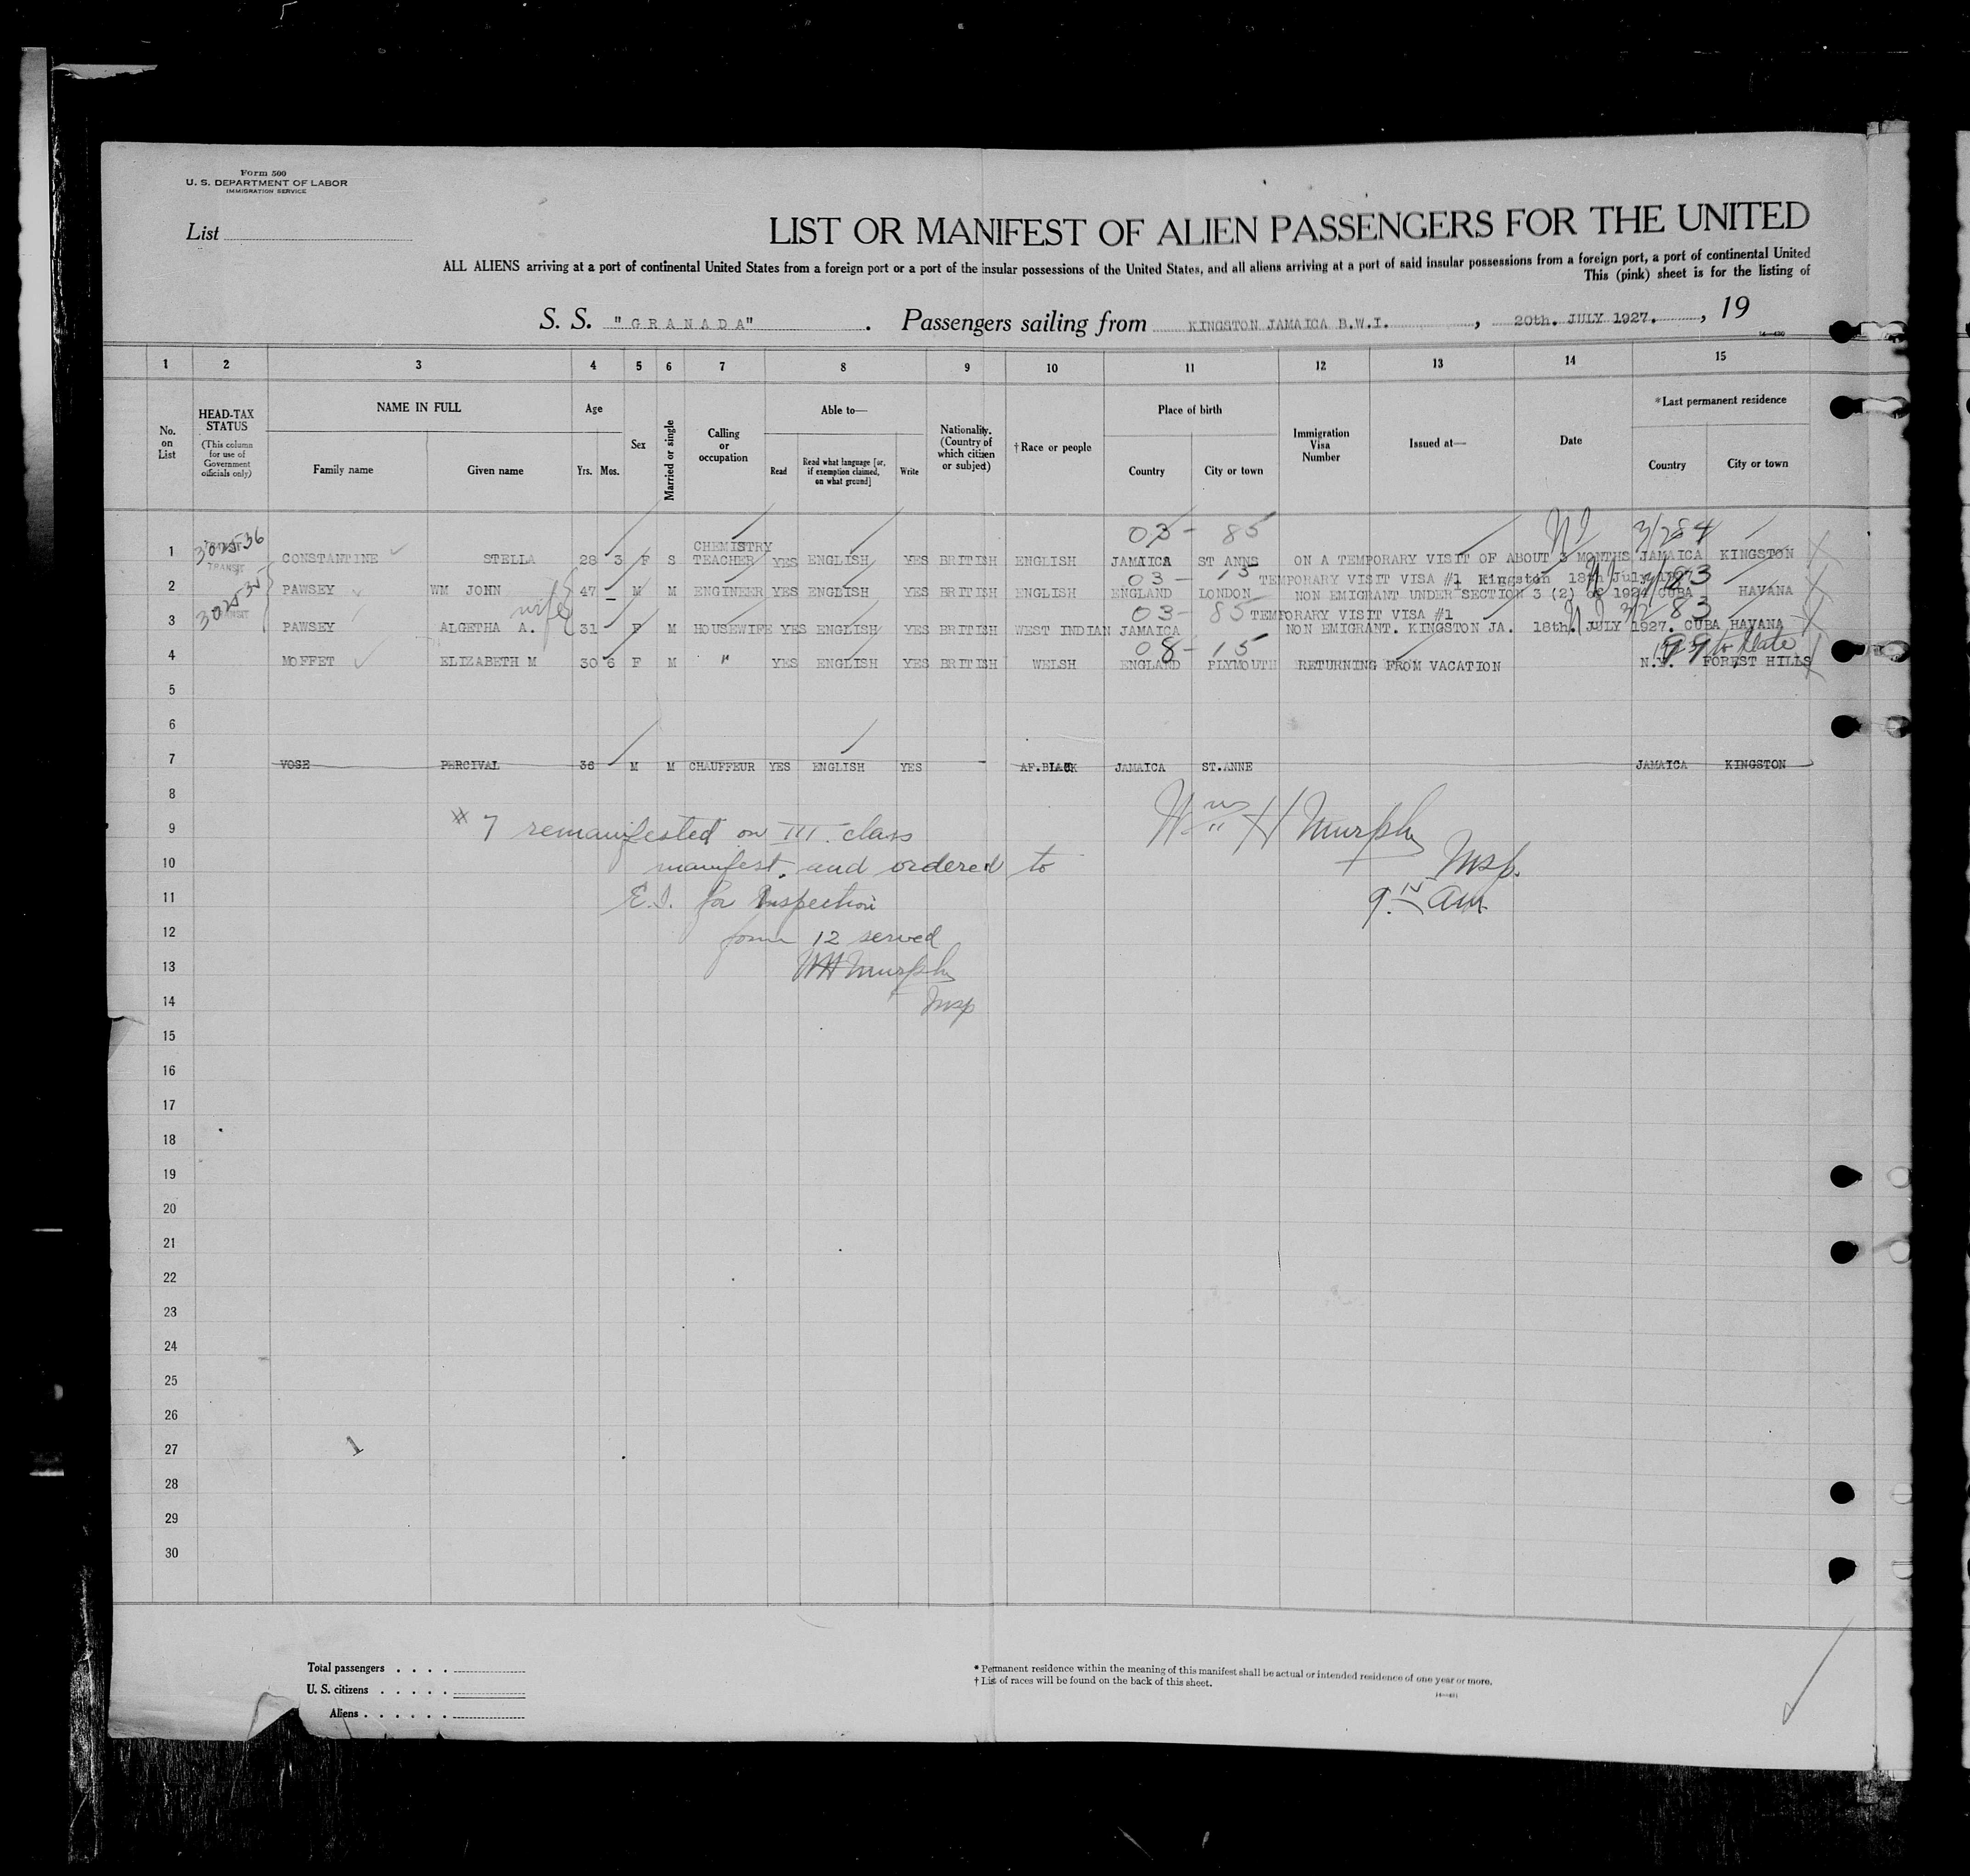 Form 500
U. S. DEPARTMENT OF LABOR
IMMIGRATION SERVICE
List
LIST OR MANIFEST OF ALIEN PASSENGERS FOR THE UNITED
ALL ALIENS arriving at a port of continental United States from a foreign port or a port of the insular possessions of the United States, and all aliens arriving at a port of said insular possessions from a foreign port, a port of continental United
This (pink) sheet is for the listing of
S. S. "GRANADA". Passengers sailing from KINGSTON JAMAICA B.W.I., 20th. JULY 1927., 19
1 2 3 4 5 6 7 8 9 10 11 12 13 14 15
No. on List
HEAD-TAX STATUS
(This column for use of Government officials only)
NAME IN FULL
Family name Given name
Age
Yrs. Mos.
Sex
Married or single
Calling or occupation
Able to—
Read
Read what language [or, if exemption claimed, on what ground]
Write
Nationality. (Country of which citizen or subject)
†Race or people
Place of birth
Country City or town
Immigration Visa Number
Issued at—
Date
*Last permanent residence
Country City or town
03- 85 NI 3/284
1 302536 TRANSIT CONSTANTINE STELLA 28 3 F S CHEMISTRY TEACHER YES ENGLISH YES BRITISH ENGLISH JAMAICA ST ANNS ON A TEMPORARY VISIT OF ABOUT 3 MONTHS JAMAICA KINGSTON
03- 15 TEMPORARY VISIT VISA #1 Kingston 18th July 1927 83
2 302535 PAWSEY WM JOHN 47 - M M ENGINEER YES ENGLISH YES BRITISH ENGLISH ENGLAND LONDON NON EMIGRANT UNDER SECTION 3 (2) OF 1924 CUBA HAVANA
wife 03- 85 TEMPORARY VISIT VISA #1 83
3 PAWSEY ALGETHA A. 31 F M HOUSEWIFE YES ENGLISH YES BRITISH WEST INDIAN JAMAICA NON EMIGRANT. KINGSTON JA. 18th. JULY 1927. CUBA HAVANA
08- 15 99 to date
4 MOFFET ELIZABETH M 30 6 F M " YES ENGLISH YES BRITISH WELSH ENGLAND PLYMOUTH RETURNING FROM VACATION N.Y. FOREST HILLS
5
6
7 VOSE PERCIVAL 36 M M CHAUFFEUR YES ENGLISH YES - AF.BLACK JAMAICA ST.ANNE JAMAICA KINGSTON
8
9 # 7 remanifested on III. class Wm H Murphy
10 manifest. and ordered to Insp.
11 E.I. for Inspection 9.15 AM
12 form 12 served
13 WH Murphy
14 Insp
15
16
17
18
19
20
21
22
23
24
25
26
27
28
29
30
Total passengers
U. S. citizens
Aliens
* Permanent residence within the meaning of this manifest shall be actual or intended residence of one year or more.
† List of races will be found on the back of this sheet.